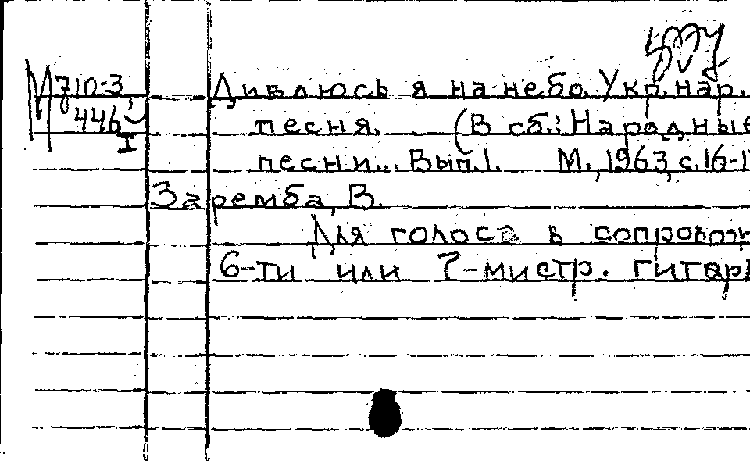 М710-3
446
I
Дивлюсь я на небо. Укр. нар.
песня. (В сб.: Народные
песни... Вып.1. М., 1963, с.16-1
Заремба, В.
Для голоса в сопровож
6-ти или 7-мистр. гитар